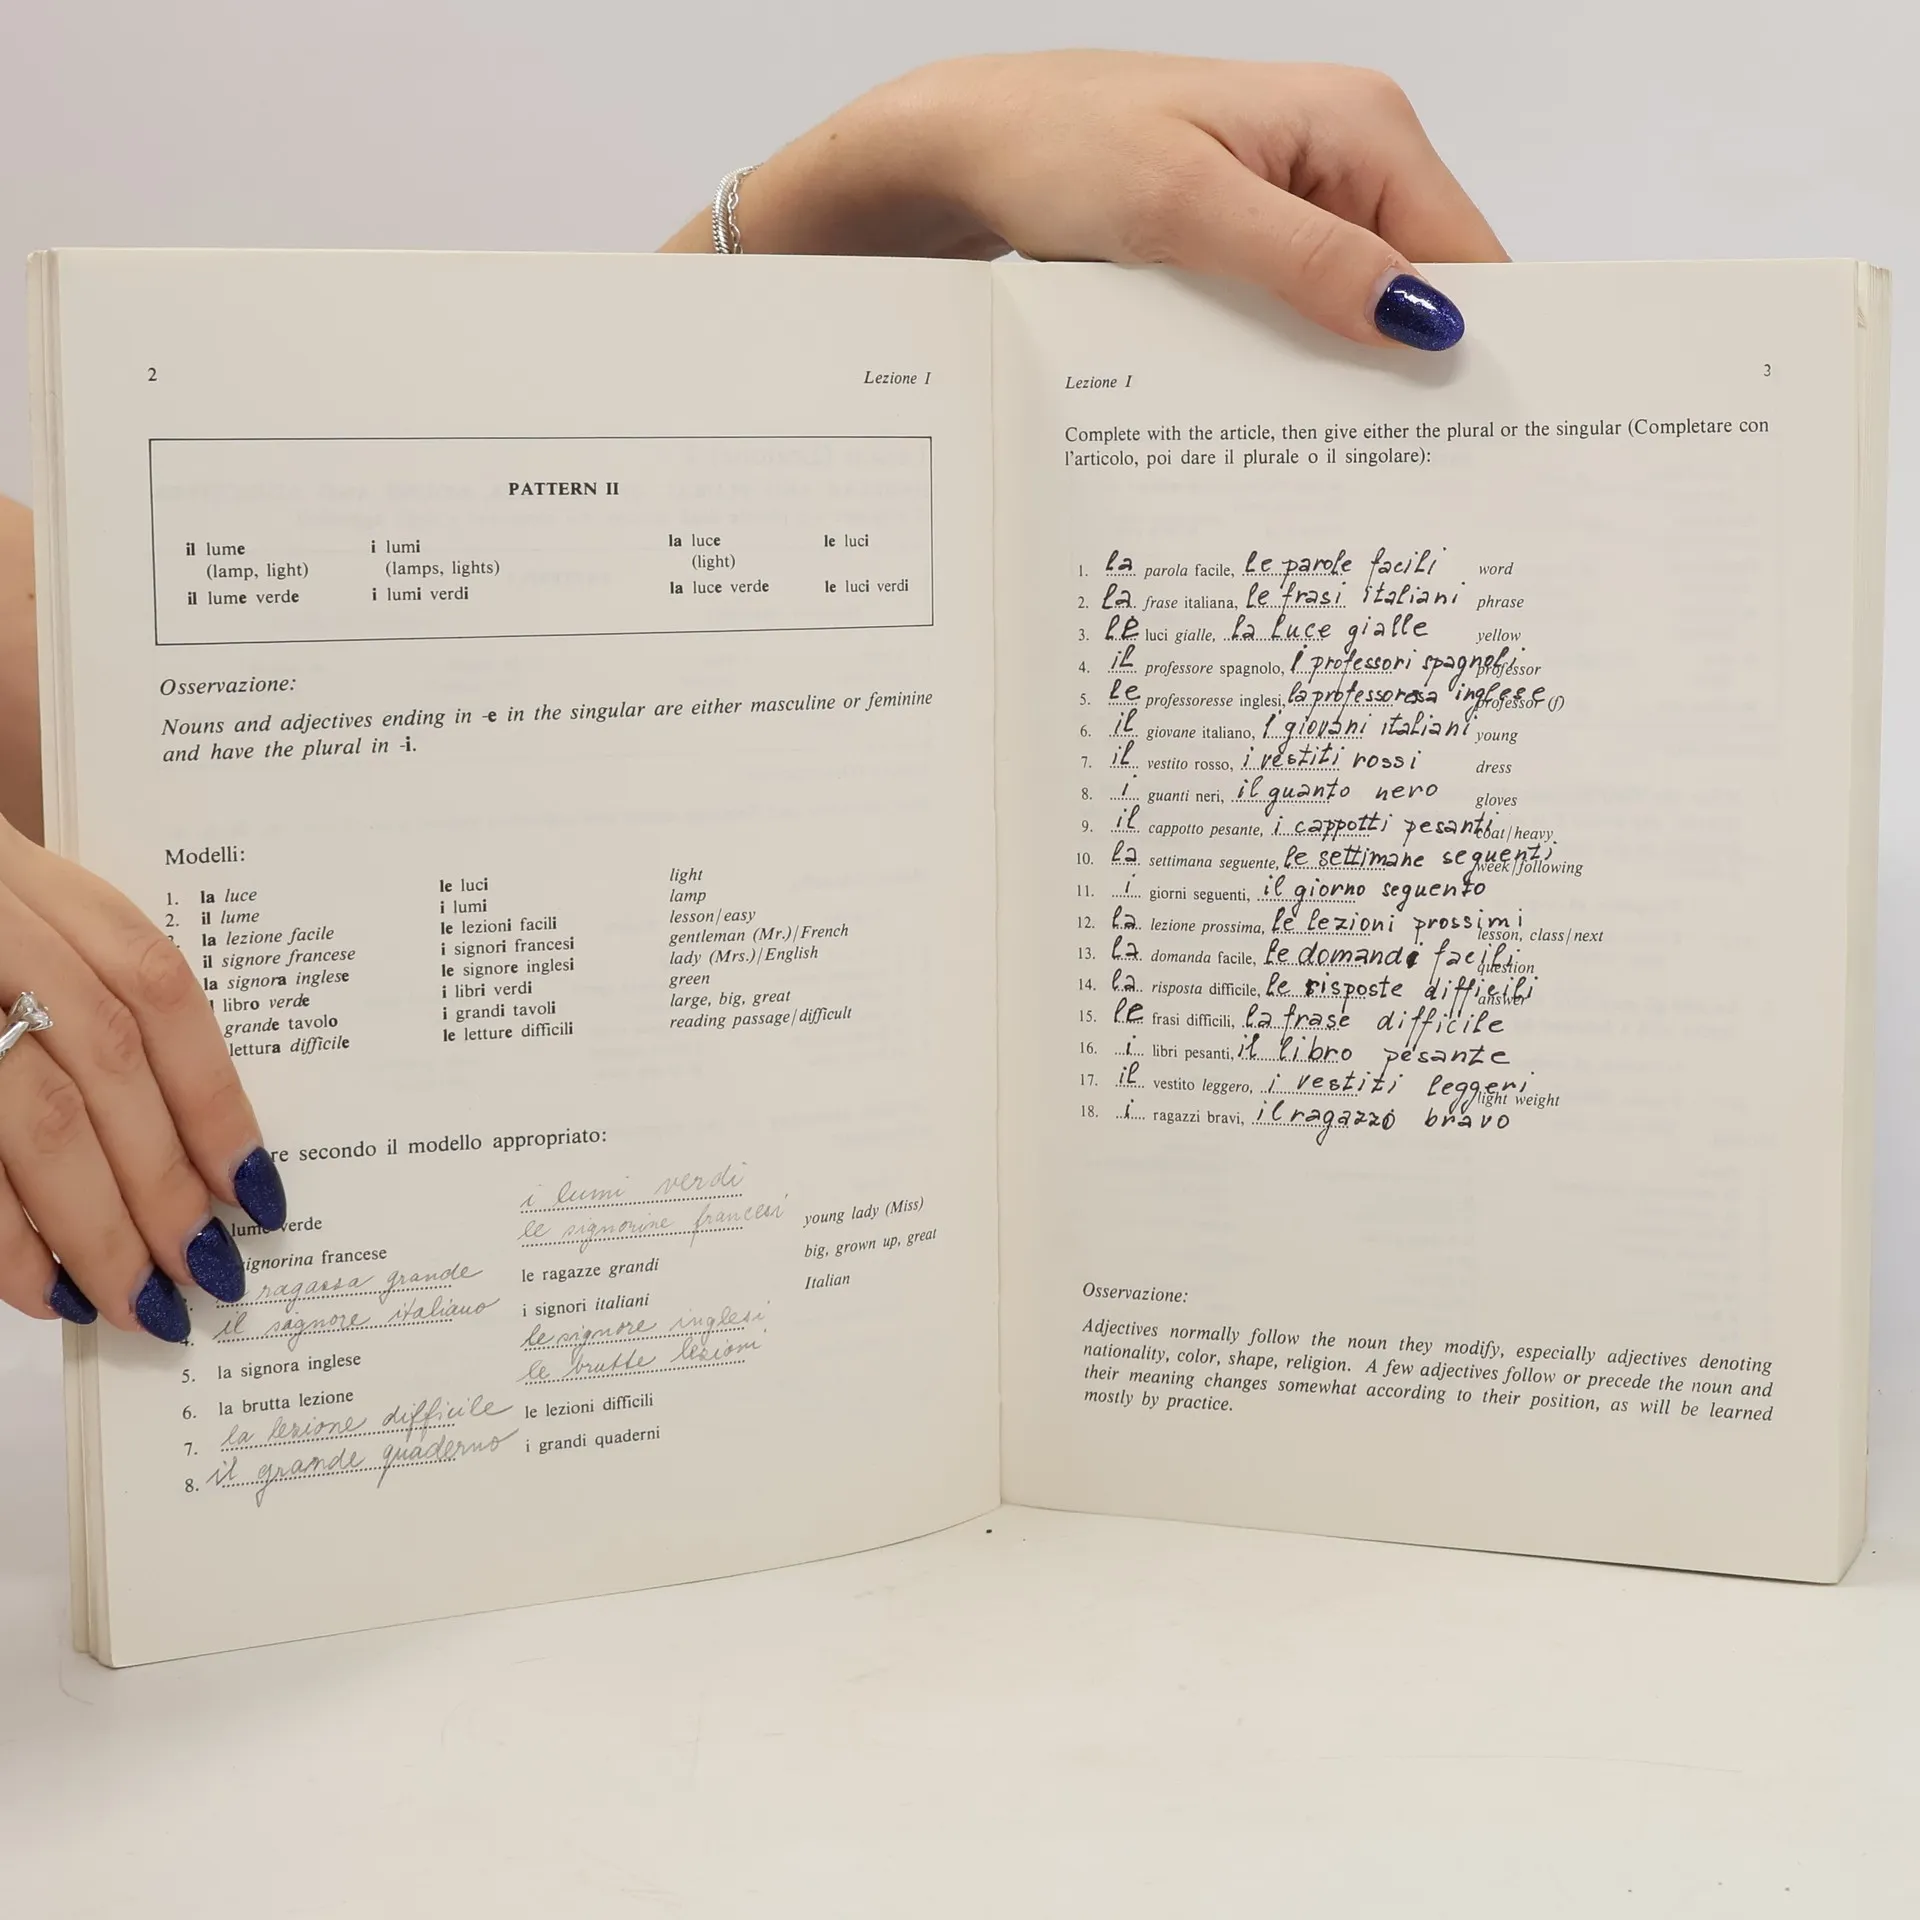 2
Lezione I
PATTERN II
il lume i lumi la luce le luci
(lamp, light) (lamps, lights) (light)
il lume verde i lumi verdi la luce verde le luci verdi
Osservazione:
Nouns and adjectives ending in -e in the singular are either masculine or feminine
and have the plural in -i.
Modelli:
1. la luce le luci light
2. il lume i lumi lamp
la lezione facile le lezioni facili lesson/easy
il signore francese i signori francesi gentleman (Mr.)/French
la signora inglese le signore inglesi lady (Mrs.)/English
libro verde i libri verdi green
grande tavolo i grandi tavoli large, big, great
lettura difficile le letture difficili reading passage/difficult
re secondo il modello appropriato:
lume verde i lumi verdi
signorina francese le signorine francesi young lady (Miss)
ragazza grande le ragazze grandi big, grown up, great
4. il signore italiano i signori italiani Italian
5. la signora inglese le signore inglesi
6. la brutta lezione le brutte lezioni
7. la lezione difficile le lezioni difficili
8. il grande quaderno i grandi quaderni
Lezione I
3
Complete with the article, then give either the plural or the singular (Completare con
l'articolo, poi dare il plurale o il singolare):
1. la parola facile, le parole facili word
2. la frase italiana, le frasi italiani phrase
3. le luci gialle, la luce gialle yellow
4. il professore spagnolo, i professori spagnoli professor
5. le professoresse inglesi, la professoressa inglese professor (f)
6. il giovane italiano, i giovani italiani young
7. il vestito rosso, i vestiti rossi dress
8. i guanti neri, il guanto nero gloves
9. il cappotto pesante, i cappotti pesanti coat/heavy
10. la settimana seguente, le settimane seguenti week/following
11. i giorni seguenti, il giorno seguento
12. la lezione prossima, le lezioni prossimi lesson, class/next
13. la domanda facile, le domandi facili question
14. la risposta difficile, le risposte difficili answer
15. le frasi difficili, la frase difficile
16. i libri pesanti, il libro pesante
17. il vestito leggero, i vestiti leggeri light weight
18. i ragazzi bravi, il ragazzo bravo
Osservazione:
Adjectives normally follow the noun they modify, especially adjectives denoting
nationality, color, shape, religion. A few adjectives follow or precede the noun and
their meaning changes somewhat according to their position, as will be learned
mostly by practice.